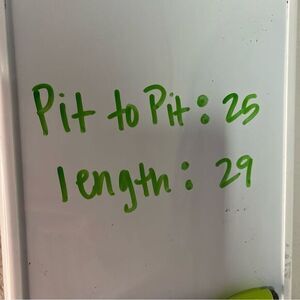 Pit to Pit: 25
length: 29